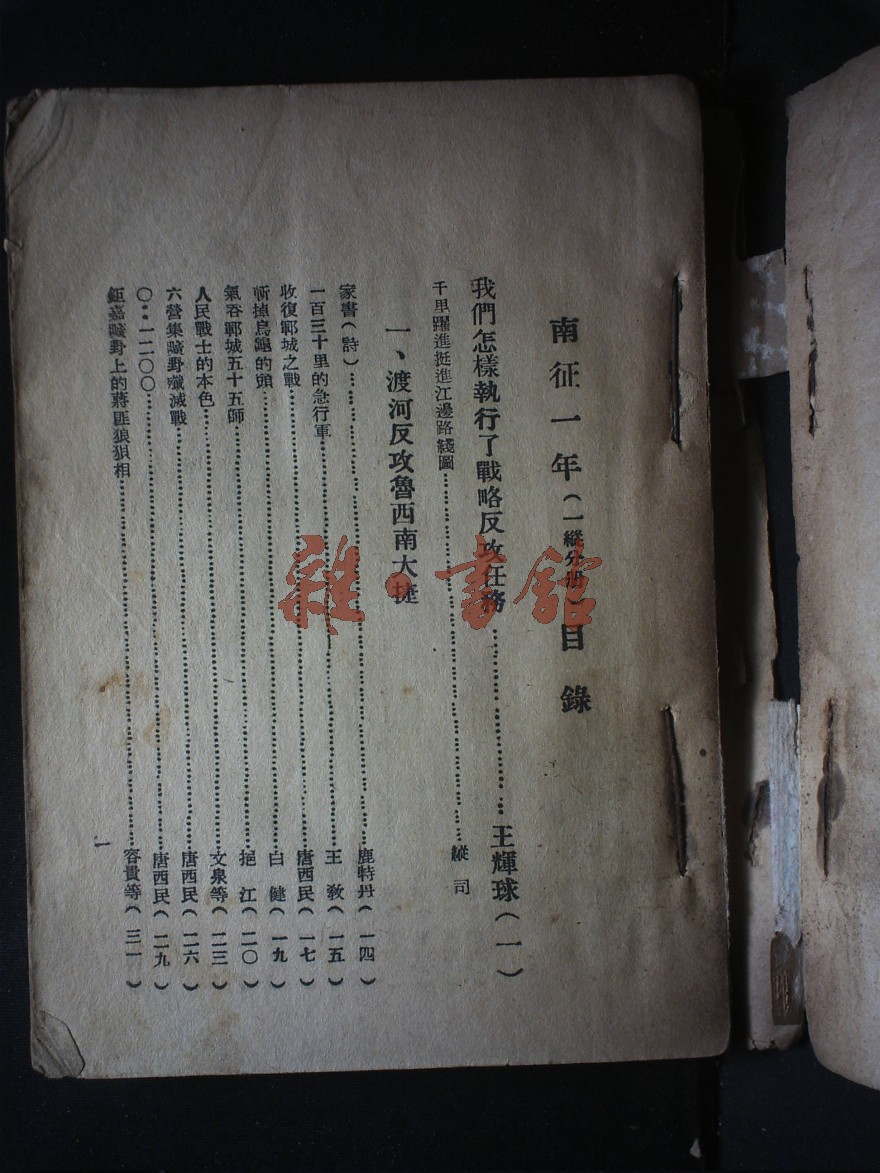 南征一年（一縱分册）目錄
我們怎樣執行了戰略反攻任務…………王輝球（一）
千里躍進挺進江邊路綫圖…………縱司
一、渡河反攻魯西南大捷
家書（詩）…………鹿特丹（一四）
一百三十里的急行軍…………王敎（一五）
收復鄆城之戰…………唐西民（一七）
斬掉烏龜的頭…………白健（一九）
氣吞鄆城五十五師…………挹江（二〇）
人民戰士的本色…………文泉等（二三）
六營集殲滅戰…………唐西民（二六）
〇：一二〇〇…………唐西民（二九）
鉅嘉上的蔣匪狼狽相…………容貴等（三一）
一
雜·書館